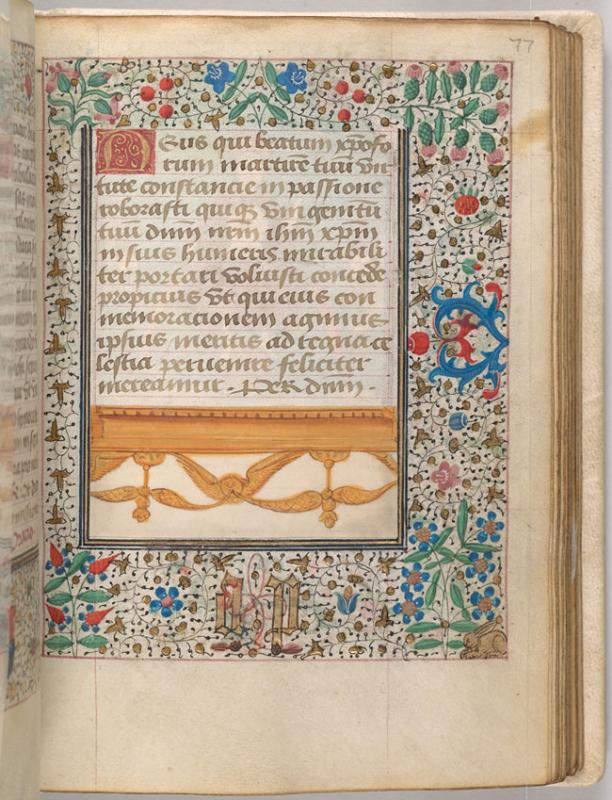 77
Deus qui beatum xp̄ofo
rum martirē tuū vir
tute constancie in passione
roborasti qui qz vnigenitū
tuū dnm nrm ihm xpm
in suis humeris mirabili
ter portari voluisti concede
propicius vt qui eius con
memoracionem agimus
ipsius meritis ad regna ce
lestia peruenire feliciter
mereamur. Per dnm.